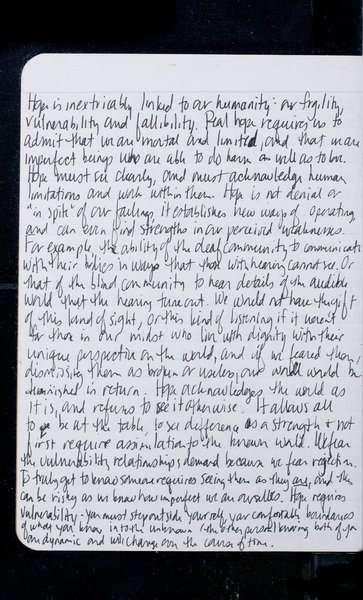 Hope is inextricably linked to our humanity: our fragility,
vulnerability and fallibility. Real hope requires us to
admit that we are mortal and limited, and that we are
imperfect beings who are able to do harm as well as to love.
Hope must see clearly, and must acknowledge human
limitations and work within them. Hope is not denial or
"in spite" of our failings, it establishes new ways of operating
and can even find strengths in our perceived weaknesses.
For example, the ability of the deaf community to communicate
with their bodies in ways that those with hearing cannot see. Or
that of the blind community to hear details of the audible
world that the hearing tune out. We would not have the gift
of this kind of sight, or this kind of listening if it weren't
for those in our midst who live with dignity with their
unique perspective on the world, and if we feared them,
dismissing them as broken or useless, we would be
diminished in return. Hope acknowledges the world as
it is, and refuses to see it otherwise. It allows all
to be at the table, to see difference as a strength & not
first require assimilation to the known world. We fear
the vulnerability relationships demand because we fear rejection.
To truly get to know someone requires seeing them as they are, and this
can be risky as we know how imperfect we are ourselves. Hope requires
vulnerability - you must step outside yourself, your comfortable boundaries
of what you know into the unknown the other person knowing both of you
are dynamic and will change over the course of time.